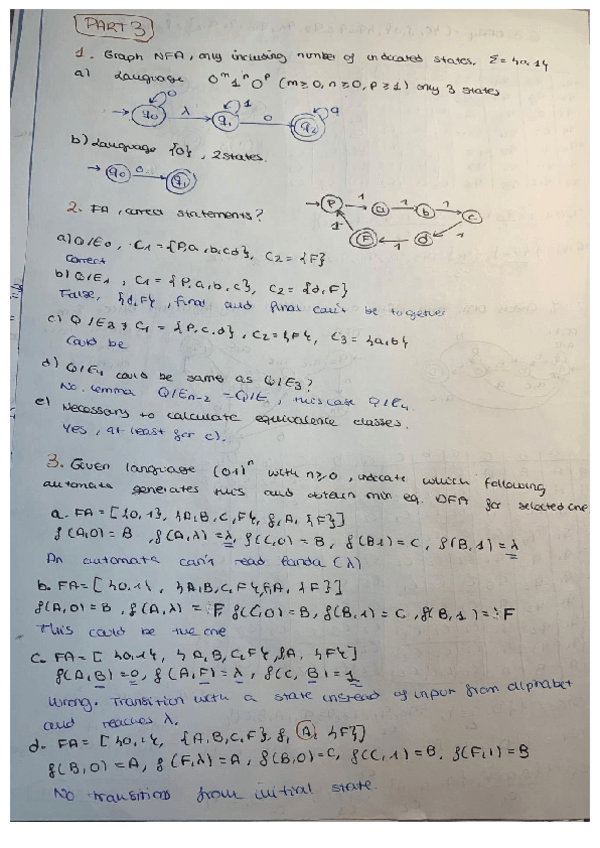 PART 3
1. Graph NFA, only including number of indicated states. Σ = {0,1}
a) Language 0^m 1^n 0^p (m≥0, n≥0, p≥1) only 3 states
q0 0 λ q1 1 0 q2 0
b) Language {0}, 2 states.
q0 0 q1
2. FA, correct statements?
P 1 a 1 b 1 c 1 d 1 F 1
a) Q/E0, C1 = {P,a,b,c,d}, C2 = {F}
Correct
b) Q/E1, C1 = {P,a,b,c}, C2 = {d,F}
False, {d,F}, final and final can't be together
c) Q/E3, C1 = {P,c,d}, C2 = {F}, C3 = {a,b}
Could be
d) Q/E4 could be same as Q/E3?
No. Lemma Q/En-2 = Q/E, this case Q/E4
e) Necessary to calculate equivalence classes.
Yes, at least for c).
3. Given language (01)^n with n≥0, indicate which following
automata generates this and obtain min eq. DFA for selected one
a. FA = [{0,1}, {A,B,C,F}, f, A, {F}]
f(A,0)=B, f(A,λ)=λ, f(C,0)=B, f(B,1)=C, f(B,1)=λ
An automata can't read lambda (λ)
b. FA = [{0,1}, {A,B,C,F}, f, A, {F}]
f(A,0)=B, f(A,λ)=F f(C,0)=B, f(B,1)=C, f(B,1)=F
This could be the one
c. FA = [{0,1}, {A,B,C,F}, f, A, {F}]
f(A,B)=0, f(A,F)=λ, f(C,B)=1
Wrong. Transition with a state instead of input from alphabet
and reaches λ.
d. FA = [{0,1}, {A,B,C,F}, f, A, {F}]
f(B,0)=A, f(F,λ)=A, f(B,0)=C, f(C,1)=B, f(F,1)=B
No transition from initial state.